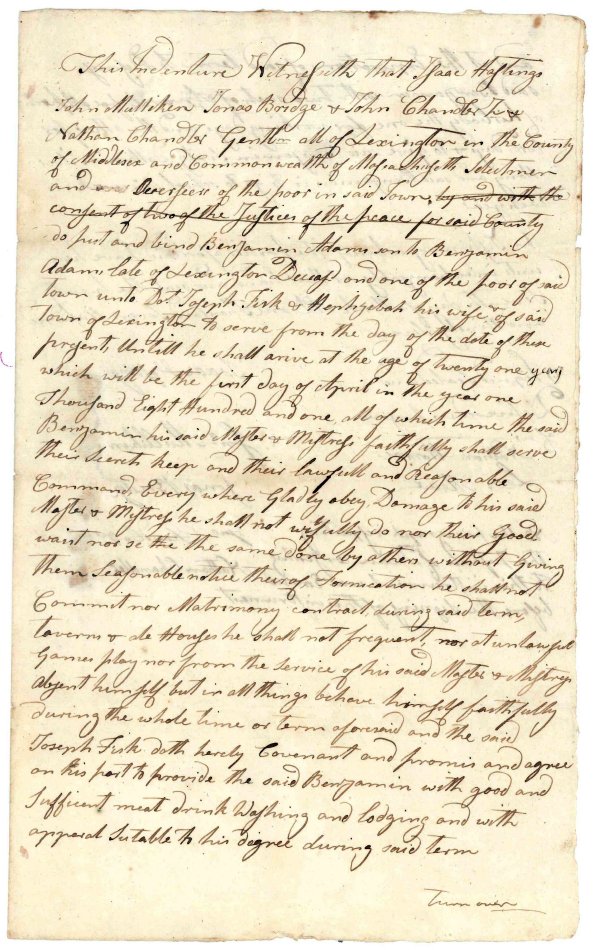 This Indenture Witnesseth that Isaac Hastings
John Mulliken Jonas Bridge & John Chandler &
Nathan Chandler Gentln all of Lexington in the County
of Middlesex and Commonwealth of Massachusetts Selectmen
and Overseers of the poor in said Town, by and with the
consent of two of the Justices of the peace for said County
do put and bind Benjamin Adams son to Benjamin
Adams late of Lexington Decasd and one of the poor of said
town unto Dr. Joseph Fisk & Hephzibah his wife of said
Town of Lexington to serve from the day of the date of these
present, Untill he shall arive at the age of twenty one years
which will be the first day of April in the year one
Thousand Eight Hundred and one all of which time the said
Benjamin his said Master & Mistress faithfully shall serve
their Secrets keep and their lawfull and Reasonable
Command Every where Gladly obey Damage to his said
Master & Mistress he shall not wilfully do nor their Good
waist nor se the the same done by others without Giving
them Seasonable notice theirof Fornication he shall not
Commit nor Matrimony contract during said term,
taverns & ale Houses he shall not frequent, nor at unlawful
Games play nor from the service of his said Master & Mistress
absent himself but in all things behave himself faithfully
during the whole time or term aforesaid and the said
Joseph Fisk doth hereby Covenant and promis and agree
on his part to provide the said Benjamin with good and
Sufficent meat drink Washing and lodging and with
apparal Sutable to his degree during said term
Turn over